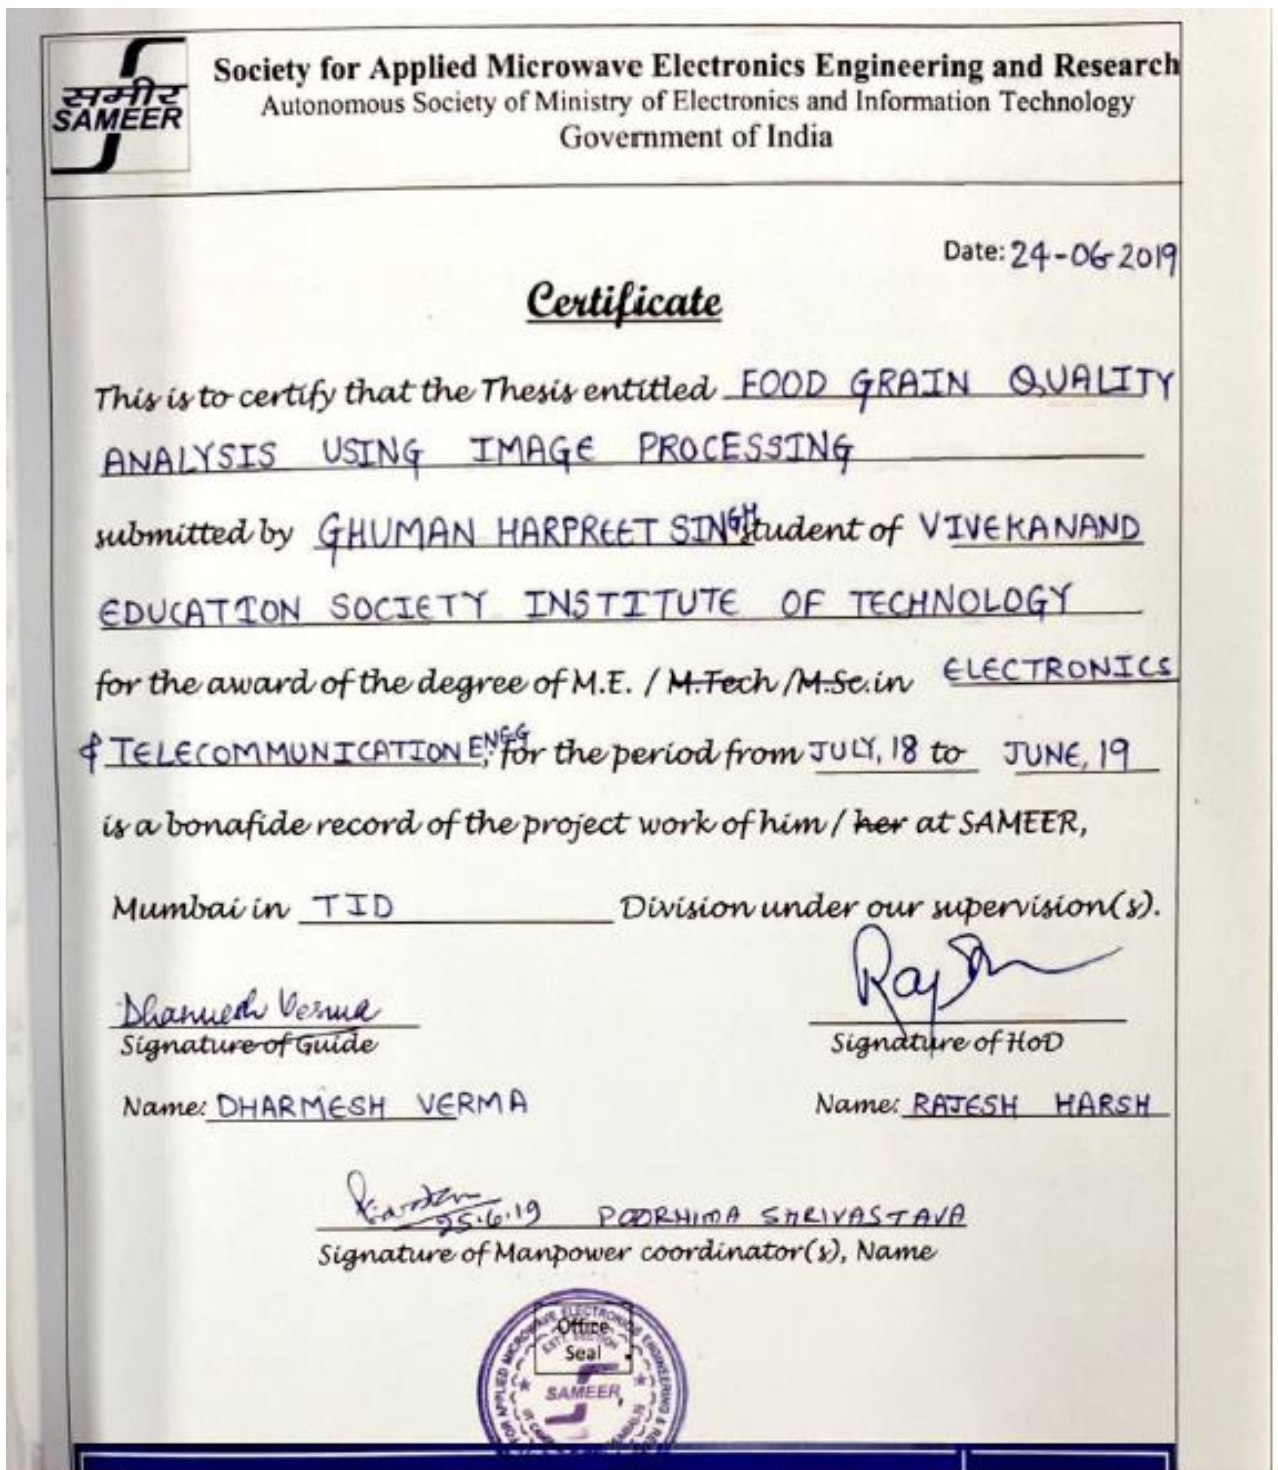 समीर
SAMEER
Society for Applied Microwave Electronics Engineering and Research
Autonomous Society of Ministry of Electronics and Information Technology
Government of India
Date: 24-06-2019
Certificate
This is to certify that the Thesis entitled FOOD GRAIN QUALITY
ANALYSIS USING IMAGE PROCESSING
submitted by GHUMAN HARPREET SINGH student of VIVEKANAND
EDUCATION SOCIETY INSTITUTE OF TECHNOLOGY
for the award of the degree of M.E. / M.Tech /M.Sc.in ELECTRONICS
& TELECOMMUNICATION ENGG, for the period from JULY, 18 to JUNE, 19
is a bonafide record of the project work of him / her at SAMEER,
Mumbai in TID Division under our supervision(s).
Dharmesh Verma
Signature of Guide Signature of HoD
Name: DHARMESH VERMA Name: RAJESH HARSH
25.6.19 POORNIMA SHRIVASTAVA
Signature of Manpower coordinator(s), Name
FOR APPLIED MICROWAVE ELECTRONICS ENGINEERING &
Office
Seal
SAMEER